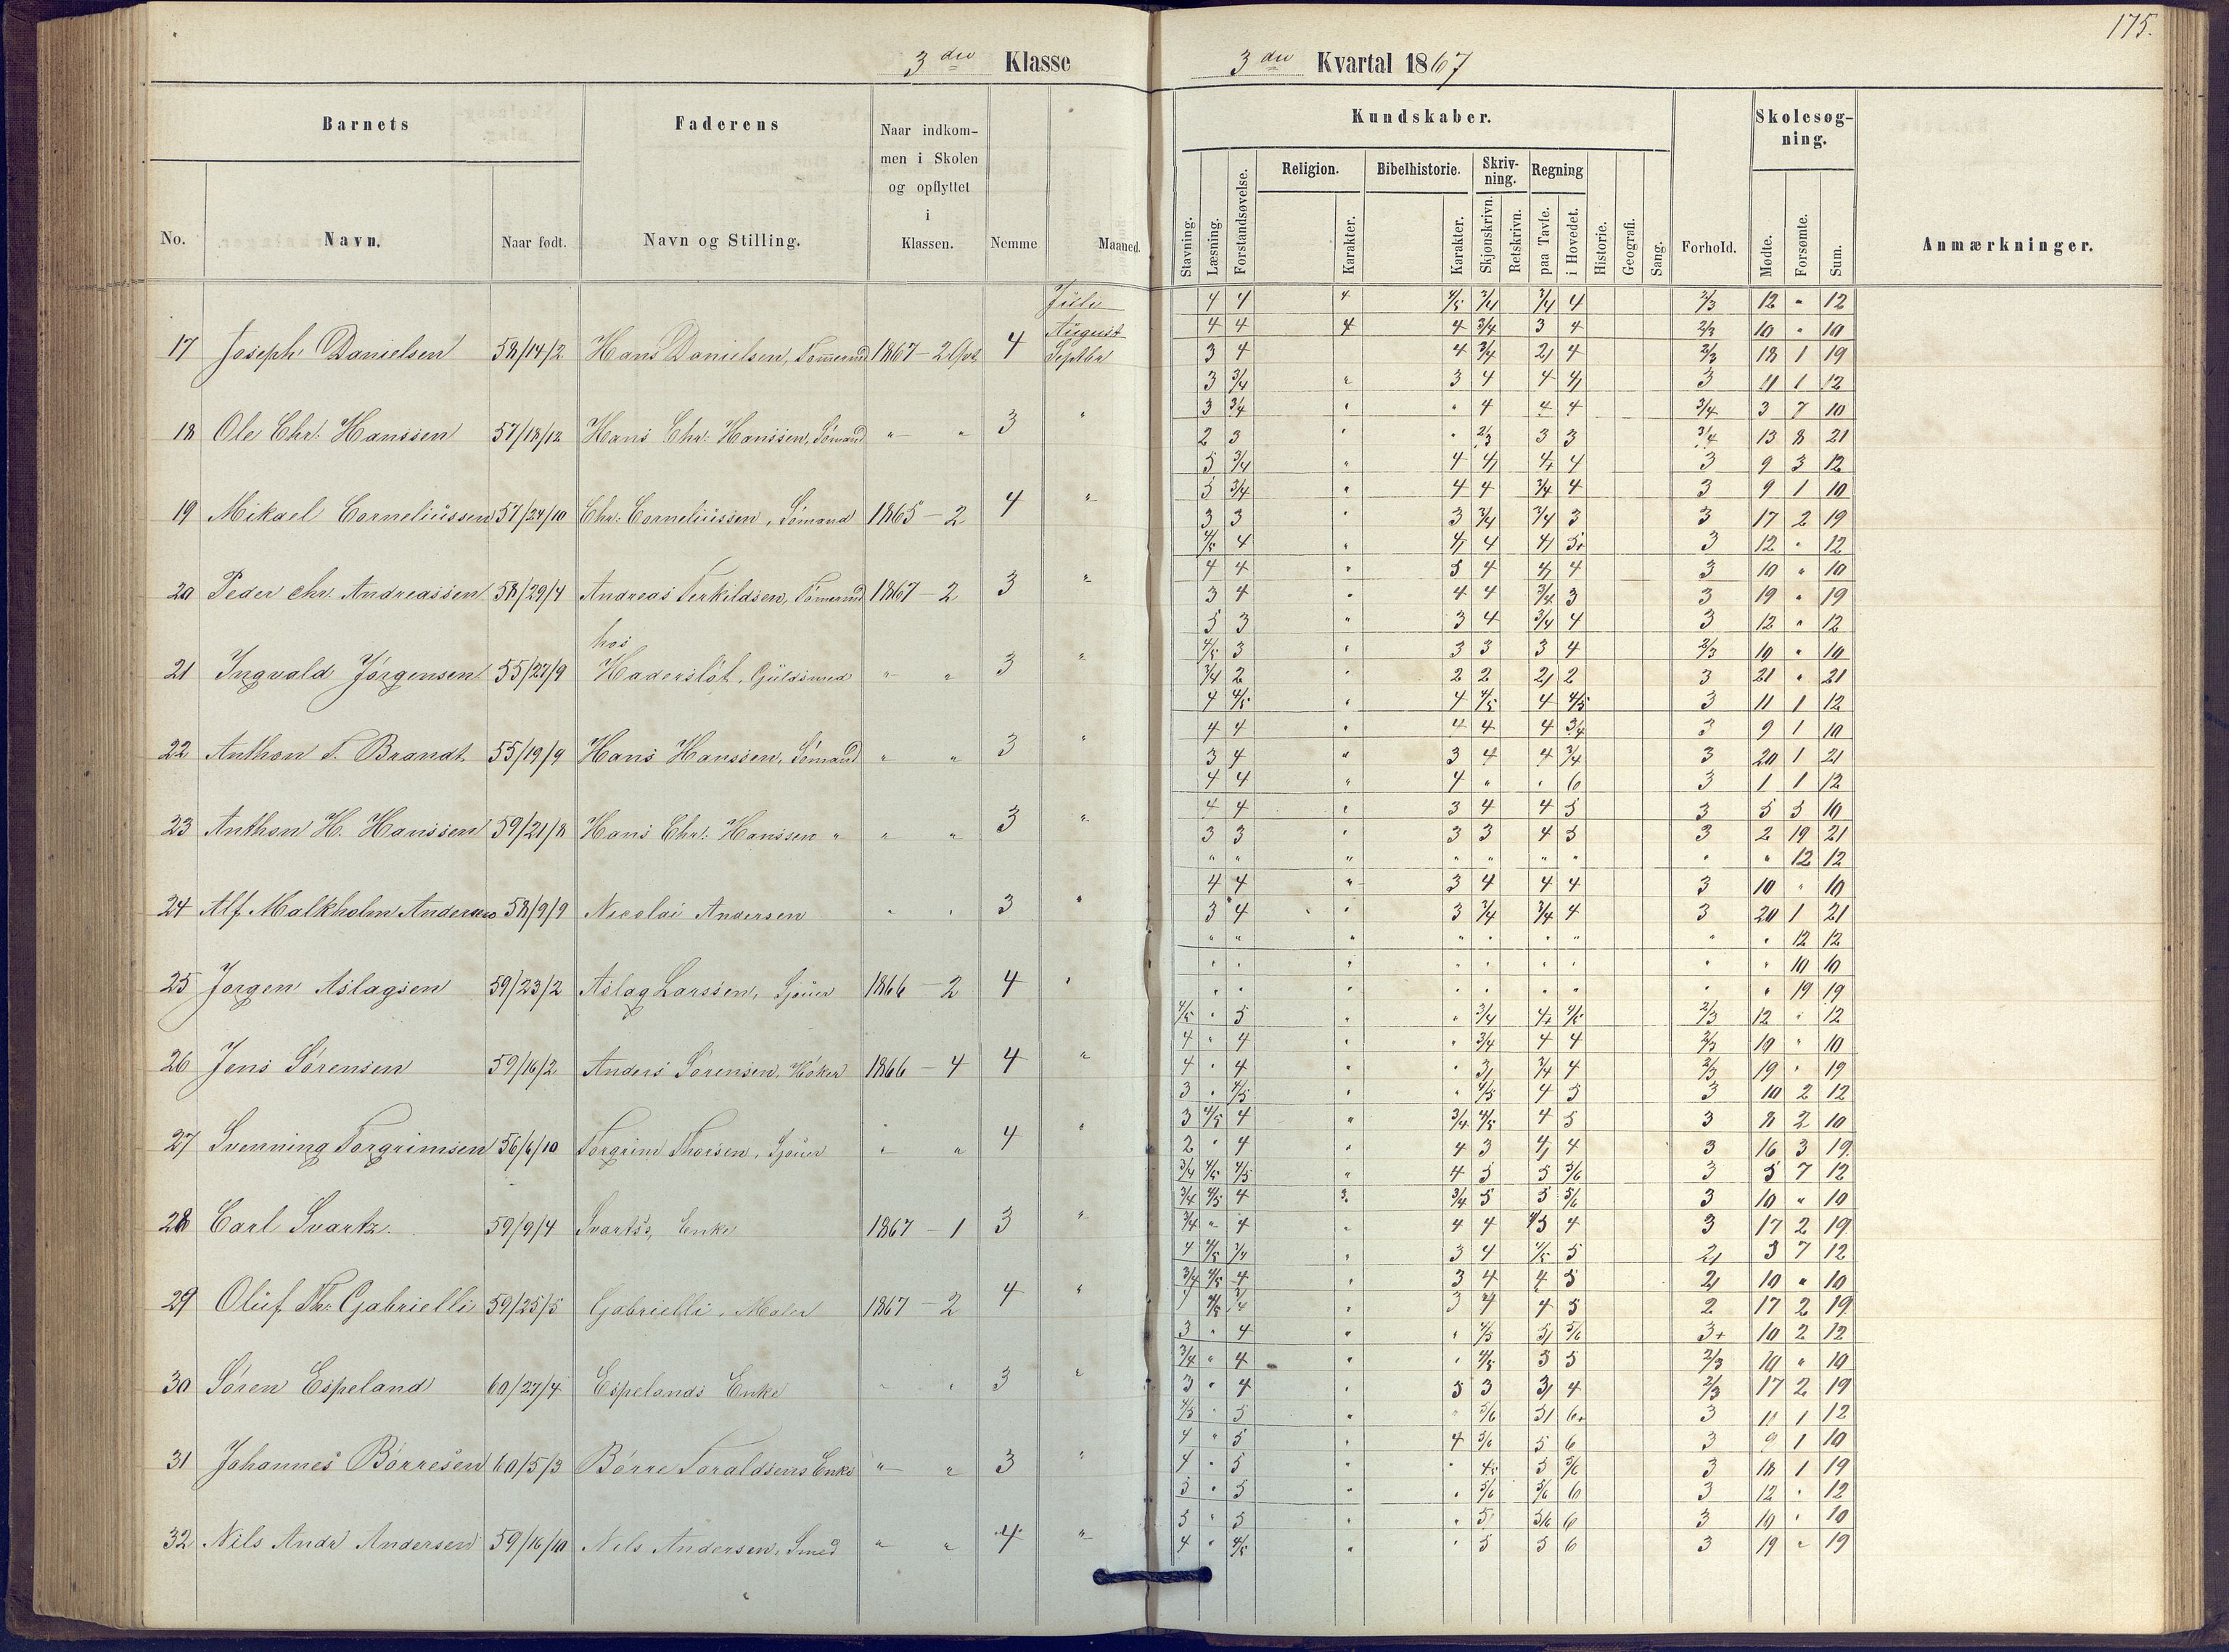 175.
3die Klasse
3die Kvartal 1867
Barnets Faderens Naar indkom-men i Skolen og opflyttet i Klassen. Nemme Maaned.
No. Navn. Naar født. Navn og Stilling.
Kundskaber. Forhold. Skolesøg-ning. Anmærkninger.
Stavning. Læsning. Forstandsøvelse. Religion. Karakter. Bibelhistorie. Karakter. Skriv-ning. Skjønskrivn. Retskrivn. Regning paa Tavle. i Hovedet. Historie. Geografi. Sang. Mødte. Forsømte. Sum.
Juli
August
17 Joseph Danielsen 58/14/2 Hans Danielsen, Tømmermd 1867 - 2 Qvt 4 Septbr
18 Ole Chr. Hanssen 57/18/12 Hans Chr. Hanssen, Sømand " " 3 "
19 Mikael Corneliussen 57/24/10 Chr. Corneliussen, Sømand 1865 - 2 4 "
20 Peder Chr. Andreassen 58/29/4 Andreas Terkildsen, Tømermd 1867 - 2 3 "
hos
21 Ingvald Jörgensen 55/27/9 Haderslöt, Guldsmed " " 3 "
22 Anthon F. Brandt 55/19/9 Hans Hanssen, Sömand " " 3 "
23 Anthon H. Hanssen 59/21/8 Hans Chr. Hanssen " " " 3 "
24 Alf Malkholm Andersen 58/9/9 Nicolai Andersen " " 3 "
25 Jørgen Aslagsen 59/23/2 Aslag Larssen, Sjouer 1866 - 2 4 "
26 Jens Sörensen 59/16/2 Anders Sörensen, Höker 1866 - 4 4 "
27 Svenning Torgrimsen 56/6/10 Torgrim Thorsen, Sjouer " " 4 "
28 Carl Svartz. 59/9/4 Svartz's Enke 1867 - 1 3 "
29 Oluf Th. Gabrielli 59/25/5 Gabrielli, Maler 1867 - 2 4 "
30 Sören Espeland 60/27/4 Espelands Enke " " 3 "
31 Johannes Börresen 60/5/3 Börre Toraldsens Enke " " 3 "
32 Nils Andr Andersen 59/16/10 Nils Andersen, Smed " " 4 "
4 4 4 4/5 3/4 3/4 4 2/3 12 " 12
4 4 4 4 3/4 3 4 2/3 10 " 10
3 4 4 3/4 2/ 4 2/3 18 1 19
3 3/4 " 3 4 4 4/ 3 11 1 12
3 3/4 " " 4 4 4 3/4 3 7 10
2 3 " " 2/3 3 3 3/4 13 8 21
5 3/4 " 4 4/ 4+ 4 3 9 3 12
5 3/4 " 4 4 3/4 4 3 9 1 10
3 3 " 3 3/4 3/4 3 3 17 2 19
4/5 4 " 4/ 4 4/ 5+ 3 12 " 12
4 4 " 5 4 4/ 4 3 10 " 10
3 4 " 4 4 3/4 3 3 19 " 19
5 3 " 3 4 3/4 4 3 12 " 12
4/5 3 " 3 3 3 4 2/3 10 " 10
3/4 2 " 2 2 2/ 2 3 21 " 21
4 4/5 " 4 4/5 4 4/5 3 11 1 12
4 4 " 4 4 4 3/4 3 9 1 10
3 4 " 3 4 4 3/4 3 20 1 21
4 4 " 4 " " 6 3 1 1 12
4 4 " 3 4 4 5 3 5 5 10
3 3 " 3 3 4 5 3 2 19 21
" " " " " " " " " 12 12
4 4 " 3 4 4 4 3 10 " 10
3 4 " 3 3/4 3/4 4 3 20 1 21
" " " " " " " " " 12 12
" " " " " " " " " 10 10
" " " " " " " " " 19 19
4/5 " 5 " " 3/4 4+ 4/5 2/3 12 " 12
4 " 4 " " 3/4 4 4 2/3 10 " 10
4 " 4 " " 3/ 3/4 4 2/3 19 " 19
3 " 4/5 " " 4/5 4 5 3 10 2 12
3 4/5 4 " 3/4 4/5 4 5 3 8 2 10
2 " 4 " 4 3 4/ 4 3 16 3 19
3/4 4/5 4/5 " 4 5 5 5/6 3 5 7 12
3/4 4/5 4 3. 3/4 5 5 5/6 3 10 " 10
3/4 " 4 " 4 4 4/5 4 3 17 2 19
4 4/5 3/4 " 3 4 4/5 5 2/ 5 7 12
3/4 4/5 4 " 3 4 4 5 2/ 10 " 10
4/5 3/4 " 3 4 4 5 2 17 2 19
3 " 4 " " 4/5 5/ 5/6 3+ 10 2 12
3/4 " 4 " " 4/5 5 5 2/3 10 " 10
3 " 4 " 5 3 3/ 4 2/3 17 2 19
4/5 " 5 " " 5/6 5/ 6+ 3 11 1 12
4 " 5 " 4 5/6 5 6 3 9 1 10
4 " 5 " " 4/5 5 5/6 3 18 1 19
5 " 5 " " 5/6 5/6 6 3 12 " 12
5 " 5 " " 5 5/6 6 3 10 " 10
4 " 4/5 " " 5 5 6 3 19 " 19